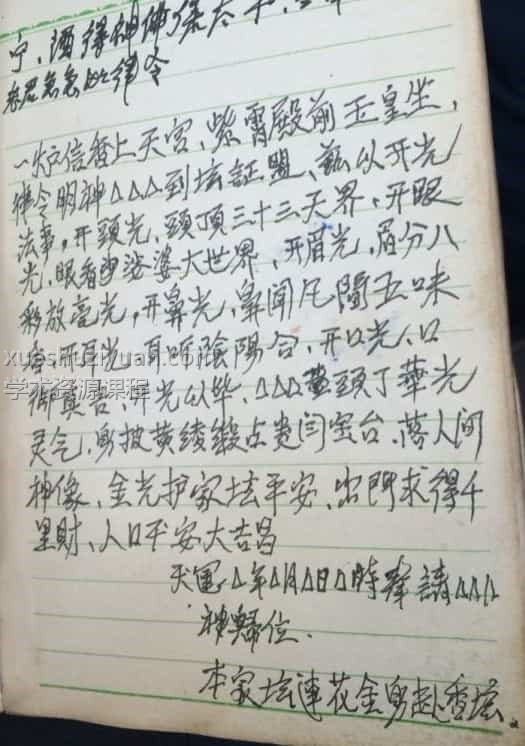 宁、酒得神佛保太平、
急急如律令
一炉信香上天宮、紫霄殿前玉皇坐、
律令明神△△△到坛証盟、兹从开光
法事，开頭光、頭頂三十三天界，开眼
光，眼看婆婆大世界、开眉光，眉分八
彩放亮光，开鼻光，鼻聞凡間五味
香、开耳光、耳听陰陽合、开口光、口
开光以毕、△△△頭丁華光
灵气、身披黄绫缎占贵闫宝台、落人间
神像、金光护家坛平安、出門求得千
里財、人口平安大吉昌
天運△年△月△日△時奉請△△△
神歸位、
本家坛連花金身赴香坛。
xueshuziyuan.com
学术资源课程